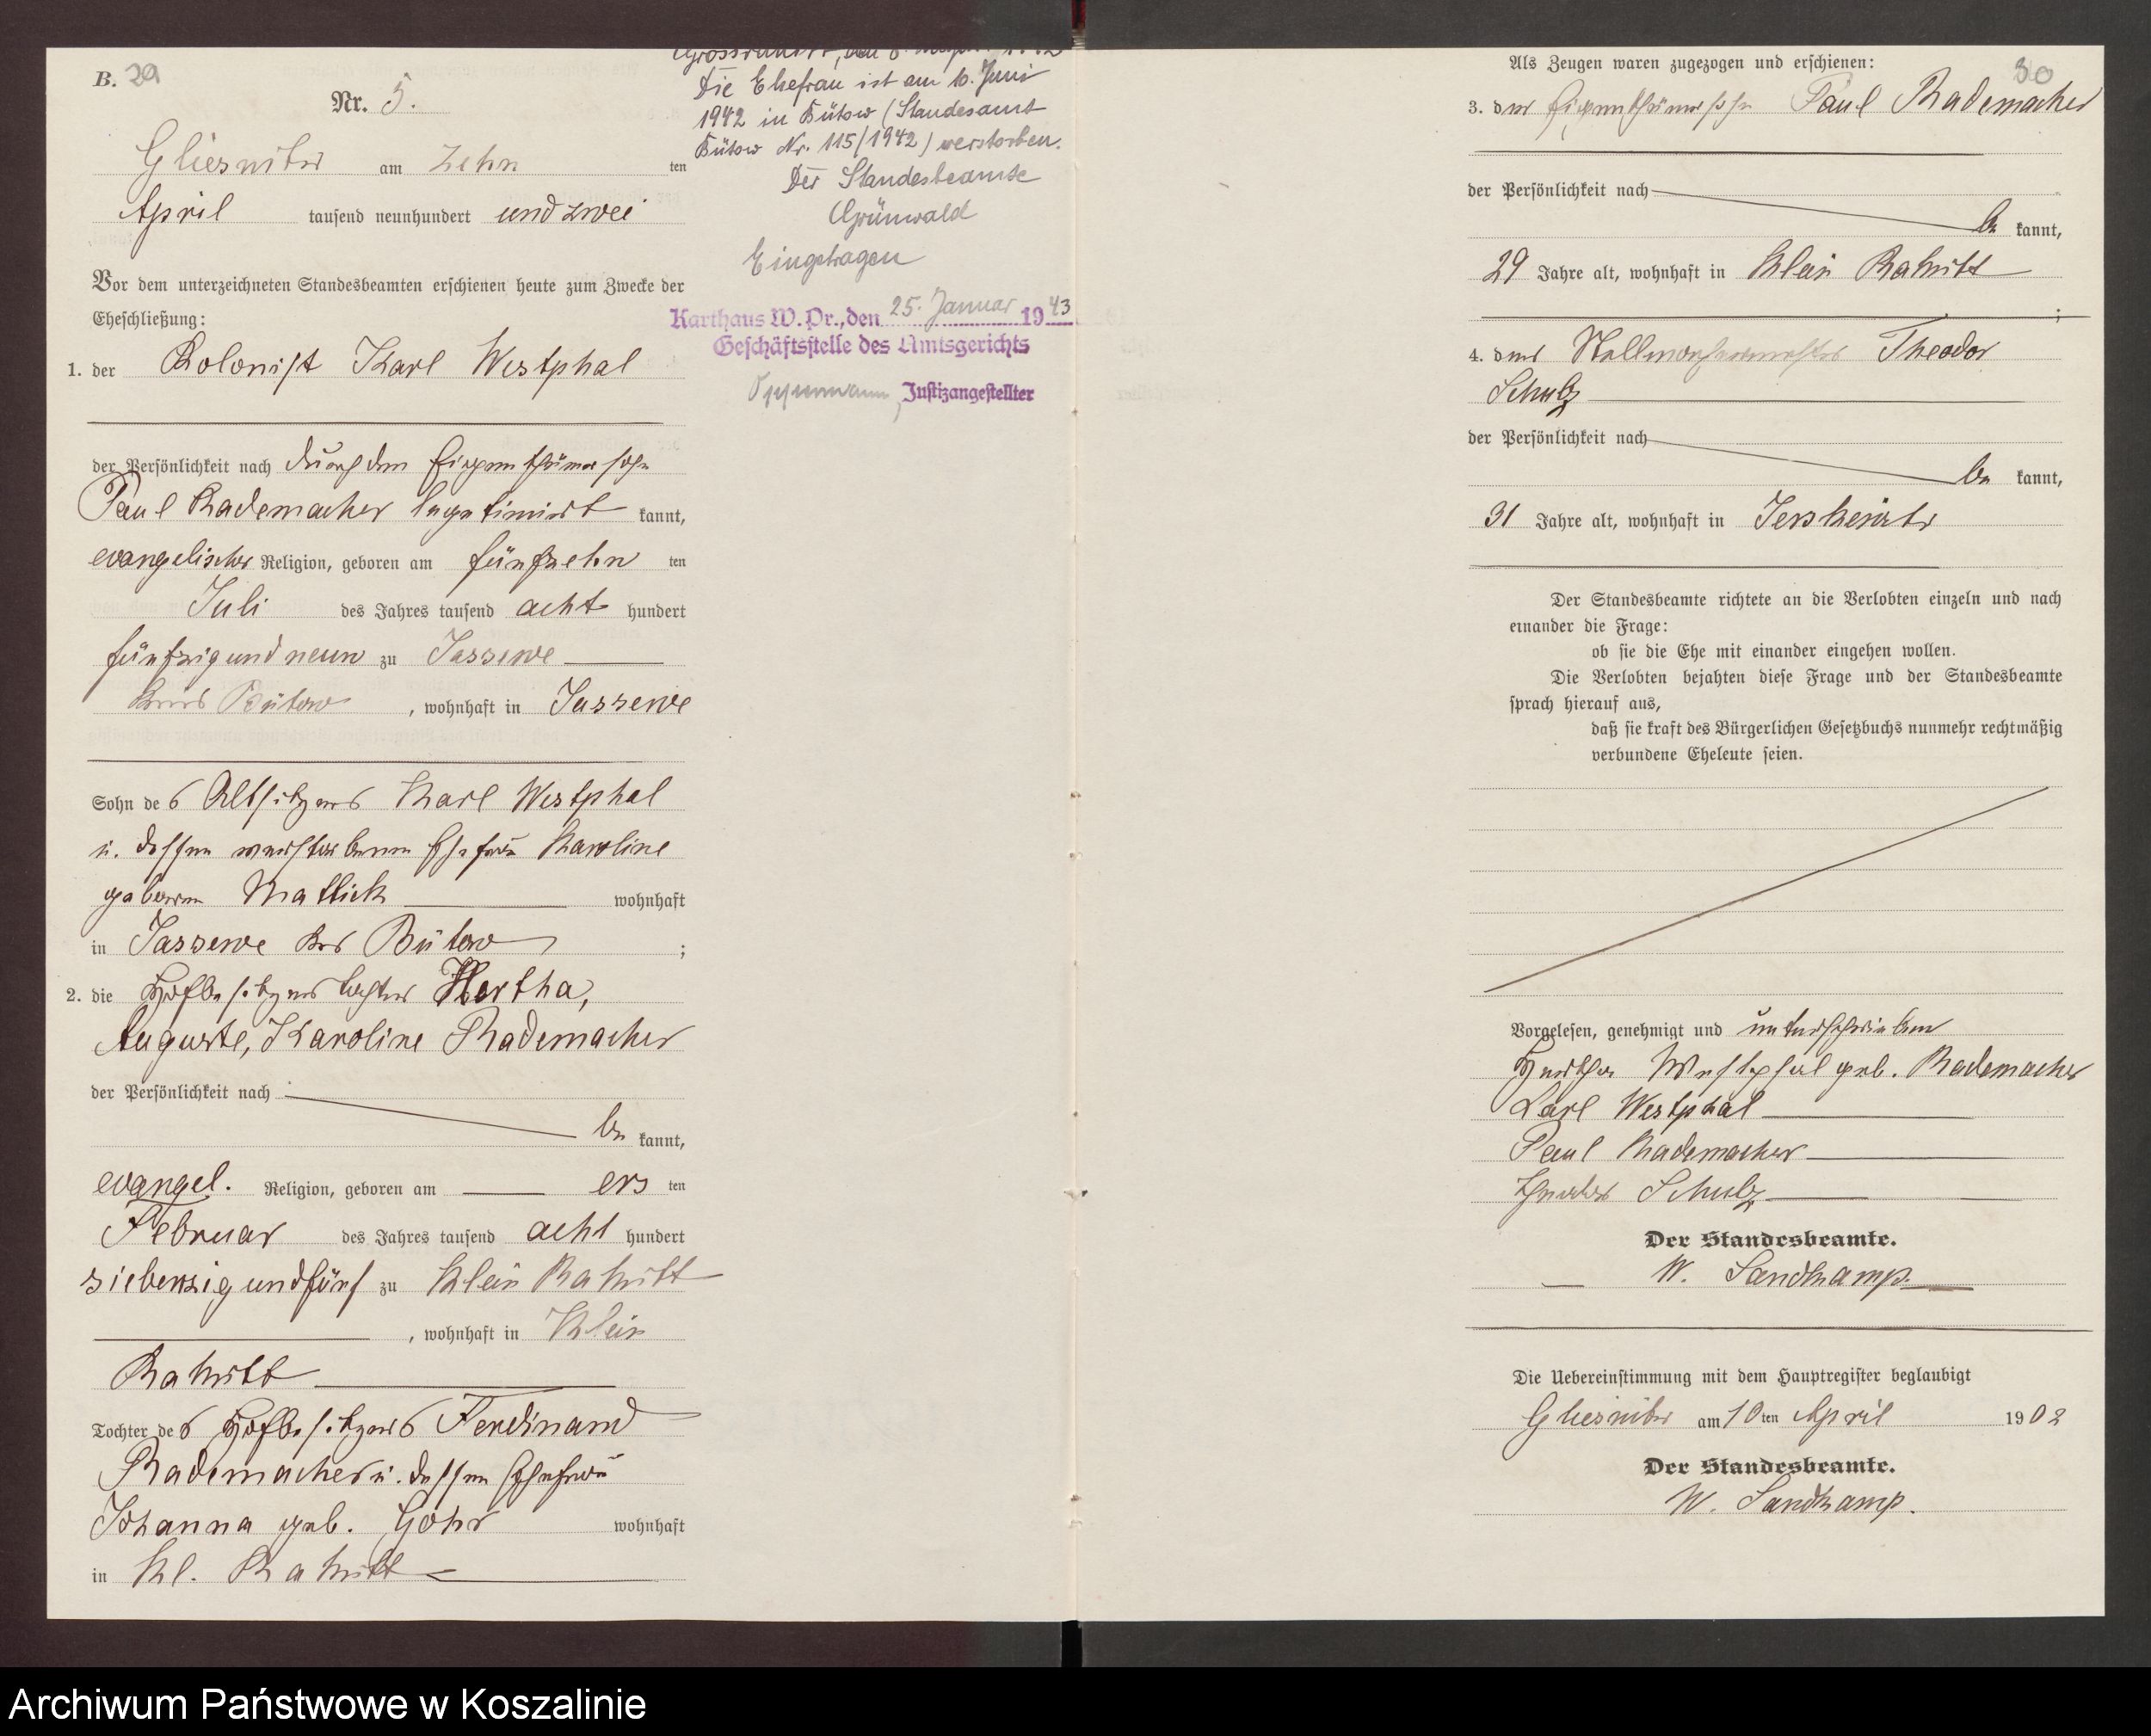 B. 29
Nr. 5.
Gliesnitz am zehn ten
April tausend neunhundert und zwei
Vor dem unterzeichneten Standesbeamten erschienen heute zum Zwecke der
Eheschließung:
1. der Kolonist Karl Westphal
der Persönlichkeit nach durch den Eigenthümersohn
Paul Rademacher legitimirt kannt,
evangelischer Religion, geboren am fünfzehn ten
Juli des Jahres tausend acht hundert
fünfzig und neun zu Jassewe
Kreis Bütow, wohnhaft in Jassewe
Sohn des Altsitzers Karl Westphal
u. dessen verstorbenen Ehefrau Karoline
geboren Mallick wohnhaft
in Jassewe Krs Bütow ;
2. die Hofbesitzers tochter Hertha,
Auguste, Karoline Rademacher
der Persönlichkeit nach
be kannt,
evangel. Religion, geboren am ers ten
Februar des Jahres tausend acht hundert
siebenzig und fünf zu Klein Rakitt
, wohnhaft in Klein
Rakitt
Tochter des Hofbesitzers Ferdinand
Rademacher u. dessen Ehefrau
Johanna geb. Göhr wohnhaft
in Kl. Rakitt
Die Ehefrau ist am 10. Juni
1942 in Bütow (Standesamt
Bütow Nr. 115/1942) verstorben.
Der Standesbeamte
Grünwald
Eingetragen
Karthaus W. Pr., den 25. Januar 1943
Geschäftsstelle des Amtsgerichts
Justizangestellter
30
Als Zeugen waren zugezogen und erschienen:
3. der Eigenthümersohn Paul Rademacher
der Persönlichkeit nach
be kannt,
29 Jahre alt, wohnhaft in Klein Rakitt
;
4. der Theodor
Schulz
der Persönlichkeit nach
be kannt,
31 Jahre alt, wohnhaft in Jerskewitz
Der Standesbeamte richtete an die Verlobten einzeln und nach
einander die Frage:
ob sie die Ehe mit einander eingehen wollen.
Die Verlobten bejahten diese Frage und der Standesbeamte
sprach hierauf aus,
daß sie kraft des Bürgerlichen Gesetzbuchs nunmehr rechtmäßig
verbundene Eheleute seien.
Vorgelesen, genehmigt und unterschrieben
Hertha Westphal geb. Rademacher
Karl Westphal
Paul Rademacher
Theodor Schulz
Der Standesbeamte.
W. Sandkamp.
Die Uebereinstimmung mit dem Hauptregister beglaubigt
Gliesnitz am 10ten April 1902
Der Standesbeamte.
W. Sandkamp.
Archiwum Państwowe w Koszalinie